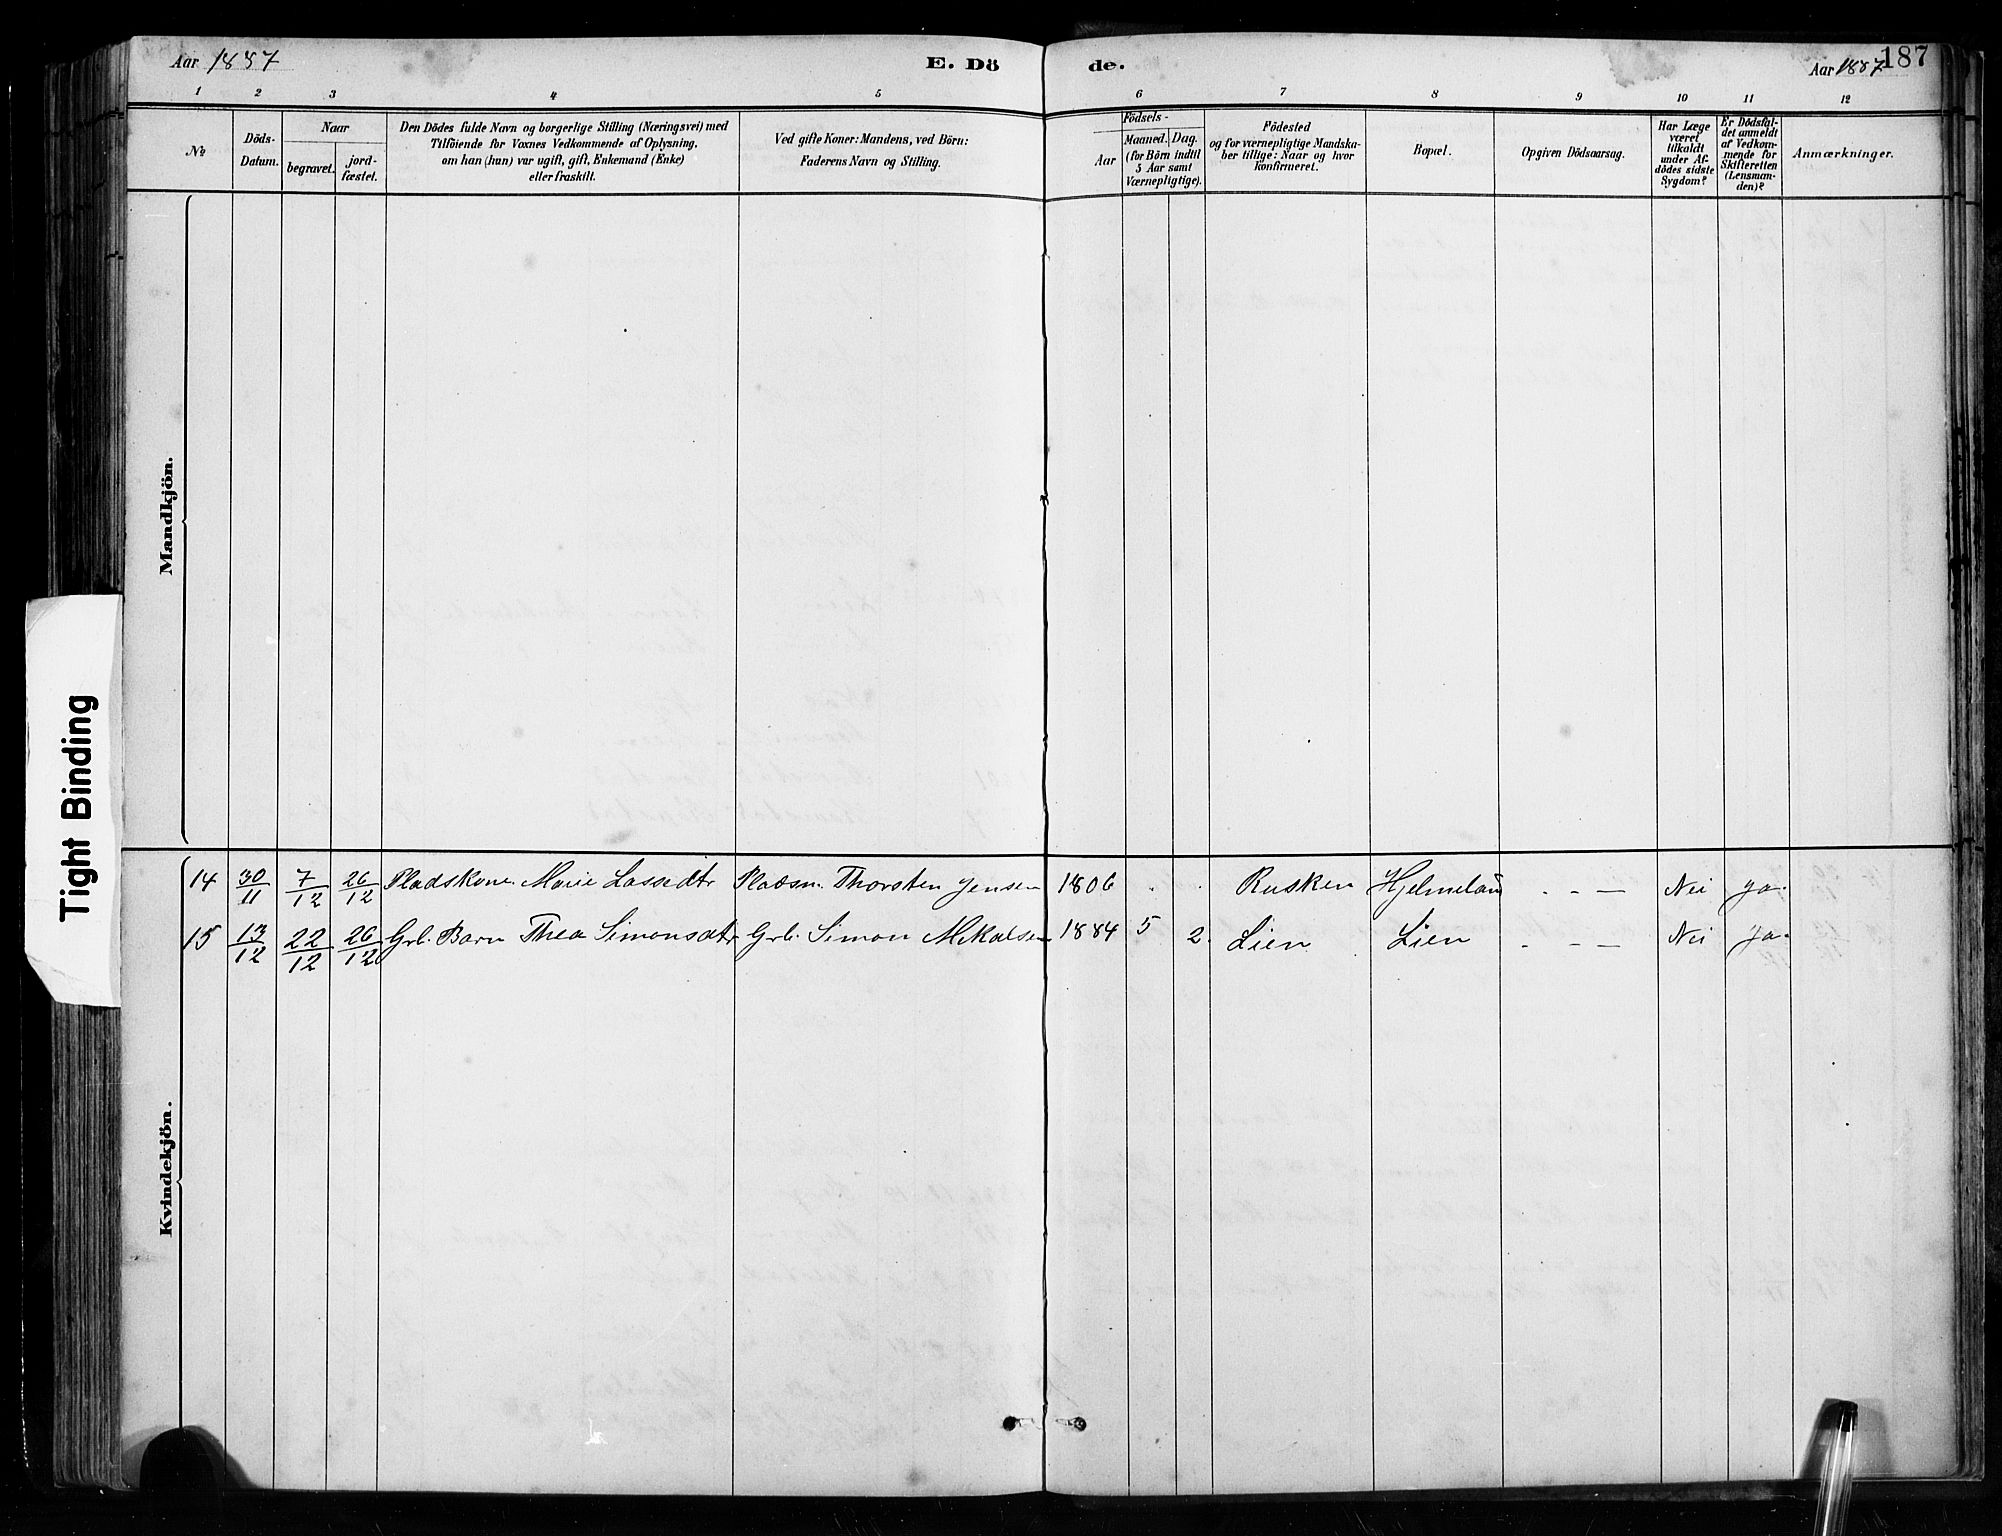 Aar 1887 E. Dö de. Aar 1887 187
1 2 3 4 5 6 7 8 9 10 11 12
№
Döds-Datum.
Naar
begravet.
jord-fæstet.
Den Dödes fulde Navn og borgerlige Stilling (Næringsvei) med
Tilföiende for Voxnes Vedkommende af Oplysning,
om han (hun) var ugift, gift, Enkemand (Enke)
eller fraskilt.
Ved gifte Koner: Mandens, ved Börn:
Faderens Navn og Stilling.
Födsels-
Aar
Maaned. Dag.
(for Börn indtil
5 Aar samt
Værnepligtige).
Födested
og for værnepligtige Mandska-
ber tillige: Naar og hvor
konfirmeret.
Bopæl.
Opgiven Dödsaarsag.
Har Læge
været
tilkaldt
under Af-
dödes sidste
Sygdom?
Er Dödsfal-
det anmeldt
af Vedkom-
mende for
Skifteretten
(Lensman-
den)?
Anmærkninger.
Mandkjön.
Kvindekjön.
14 30/11 7/12 26/12 Pladskone Marie Lassedtr Pladsm. Thorsten Jensen 1806 . . Rusken Hjelmeland - - — Nei ja.
15 13/12 22/12 26/12 Grb. Barn Thea Simonsdtr Grb. Simon Mikalsen 1884 5 2. Lien Lien - - — Nei ja.
Tight Binding